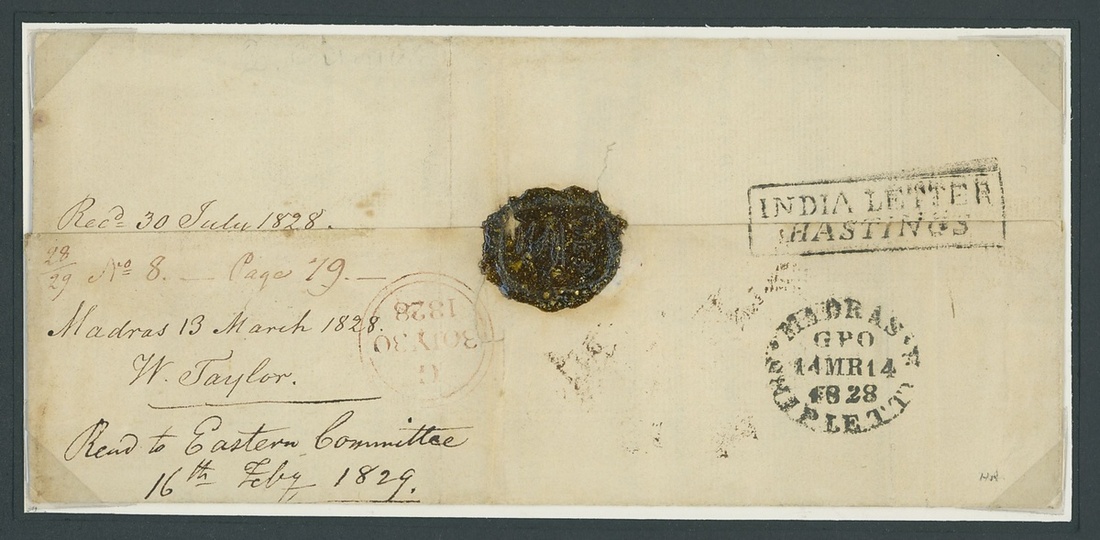 Recd 30 July 1828.
28/29 No 8. — Page 79 —
Madras 13 March 1828.
W. Taylor.
Read to Eastern Committee
16th Feby 1829.
1828
INDIA LETTER
HASTINGS
MADRAS
GPO
14MR14
1828
P LETT